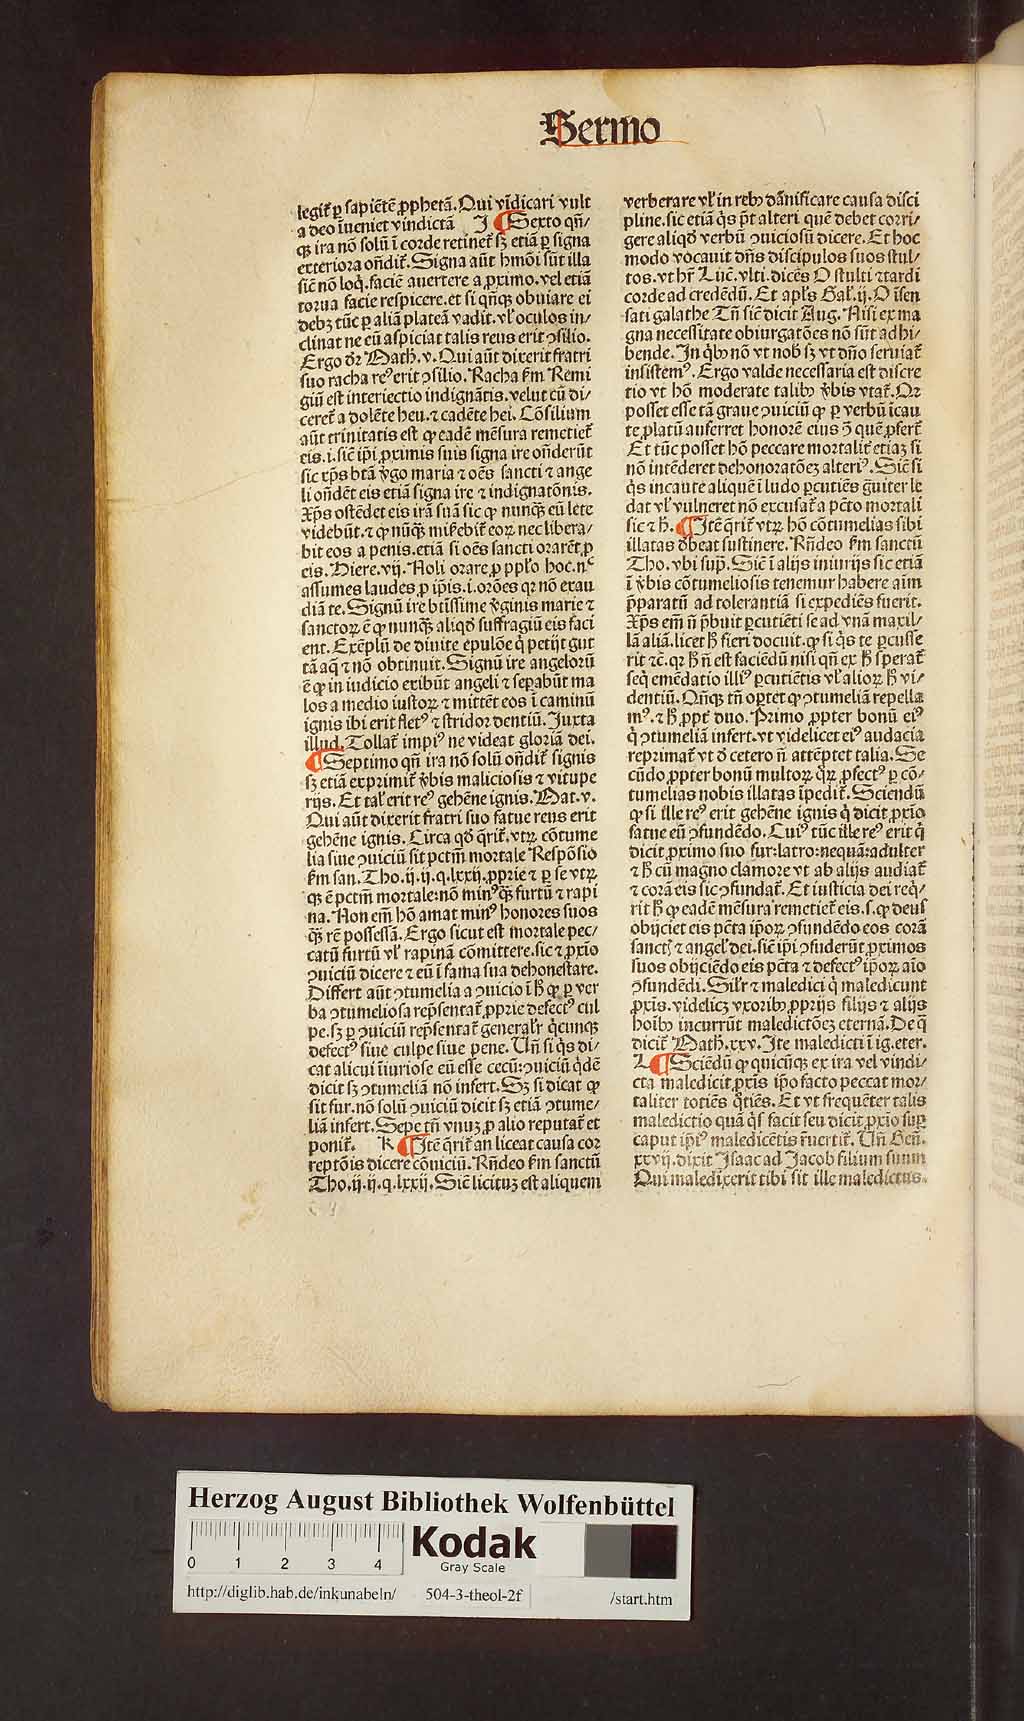 Sermo
legit᷑ ꝑ sapiētē ꝓphetā. Qui vīdicari vult
a deo īueniet vindictā J ¶ Sexto qn̄/
qꝫ ira nō solū ī corde retinet᷑ sꝫ etiā ꝑ signa
exteriora on̄dit᷑. Signa aūt hmōi sūt illa
siē nō loq̇. faciē auertere a ꝓximo. vel etiā
torua facie respicere. et si qn̄qꝫ obuiare ei
debꝫ tūc ꝑ aliā plateā vadit. vl᷑ oculos in/
clinat ne eū aspiciat talis reus erit ꝯsilio.
Ergo dr̄ Math. v. Qui aūt dixerit fratri
suo racha reꝰ erit ꝯsilio. Racha ẜm Remi
giū est interiectio indignātis. velut cū di/
ceret᷑ a dolēte heu. ⁊ cadēte hei. Cōsilium
aūt trinitatis est ꝙ eadē mēsura remetiet᷑
eis. i. siē ip̄i ꝓximis suis signa ire on̄derūt
sic xp̄s btā v̓go maria ⁊ oēs sancti ⁊ ange
li on̄dēt eis etiā signa ire ⁊ indignatōnis.
Xp̄s ostēdet eis irā suā sic ꝙ nunqꝫ eū lete
videbūt. ⁊ ꝙ nūqꝫ mis̓ebit᷑ eoꝝ nec libera/
bit eos a penis. etiā si oēs sancti orarēt ꝓ
eis. Hiere. vij. Noli orare ꝓ pplo hoc. nᶜ
assumes laudes ꝓ ip̄is. i. orōes qꝛ nō exau
diā te. Signū ire btīssime v̓ginis marie ⁊
sanctoꝝ ē ꝙ nunqꝫ aliqd̓ suffragiū eis faci
ent. Exēplū de diuite epulōe q̇ petijt gut
tā aq̄ ⁊ nō obtinuit. Signū ire angelorū
ē ꝙ in iudicio exibūt angeli ⁊ sepabūt ma
los a medio iustoꝝ ⁊ mittēt eos ī caminū
ignis ibi erit fletꝰ ⁊ stridor dentiū. Juxta
illud. Tollat᷑ impiꝰ ne videat gloriā dei.
¶ Septimo qn̄ ira nō solū on̄dit᷑ signis
sꝫ etiā exprimit᷑ v̓bis maliciosis ⁊ vitupe
rijs. Et tal᷑ erit reꝰ gehēne ignis. Mat. v.
Qui aūt dixerit fratri suo fatue reus erit
gehēne ignis. Circa qd̓ q̄rit᷑. vtꝝ cōtume
lia siue ꝯuiciū sit pctm̄ mortale Respōsio
ẜm san. Tho. ij. ij. q. lxxij. ꝓprie ⁊ ꝑ se vtꝝ
qꝫ ē pctm̄ mortale: nō minꝰ qꝫ furtū ⁊ rapi
na. Non em̄ hō amat minꝰ honores suos
qꝫ rē possessā. Ergo sicut est mortale pec/
catū furtū vl᷑ rapinā cōmittere. sic ⁊ ꝓxīo
ꝯuiciū dicere ⁊ eū ī fama sua dehonestare.
Differt aūt ꝯtumelia a ꝯuicio ī ḣ ꝙ ꝑ ver
ba ꝯtumeliosa rep̄sentat᷑ ꝓprie defectꝰ cul
pe. sꝫ ꝑ ꝯuiciū rep̄sentat᷑ general᷑r q̇cunqꝫ
defectꝰ siue culpe siue pene. Un̄ si q̇s di/
cat alicui īiuriose eū esse cecū: ꝯuiciū q̇dē
dicit sꝫ ꝯtumeliā nō infert. Sꝫ si dicat ꝙ
sit fur. nō solū ꝯuiciū dicit sꝫ etiā ꝯtume/
liā infert. Sepe tn̄ vnuꝫ ꝓ alio reputat᷑ et
ponit᷑. K ¶ Jtē q̄rit᷑ an liceat causa cor
reptōis dicere cōuiciū. Rn̄deo ẜm sanctū
Tho. ij. ij. q. lxxij. Siē licituꝫ est aliquem
verberare vl᷑ in rebꝰ dānificare causa disci
pline. sic etiā q̇s pōt alteri quē debet corri/
gere aliqd̓ verbū ꝯuiciosū dicere. Et hoc
modo vocauit dn̄s discipulos suos stul/
tos. vt hr̄ Luc̄. vlti. dicēs O stulti ⁊ tardi
corde ad credēdū. Et apl̄s Gal᷑. ij. O īsen
sati galathe Tn̄ siē dicit Aug. Nisi ex ma
gna necessitate obiurgatōes nō sūt adhi/
bende. Jn q̇bꝰ nō vt nob̓ sꝫ vt dn̄o seruiat᷑
insistemꝰ. Ergo valde necessaria est discre
tio vt hō moderate talibꝰ v̓bis vtat᷑. Qꝛ
posset esse tā graue ꝯuiciū ꝙ ꝑ verbū īcau
te ꝓlatū auferret honorē eius ꝯ̄ quē ꝓfert᷑
Et tūc posset hō peccare mortalit᷑ etiaꝫ si
nō intēderet dehonoratōeꝫ alteriꝰ. Siē si
q̇s incaute aliquē ī ludo ꝑcutiēs g̓uiter le
dat vl᷑ vulneret nō excusat᷑ a pctō mortali
sic ⁊ ḣ. ¶ Jtē q̄rit᷑ vtꝝ hō cōtumelias sibi
illatas d̓beat sustinere. Rn̄deo ẜm sanctū
Tho. vbi sup̄. Siē ī alijs iniurijs sic etiā
ī v̓bis cōtumeliosis tenemur habere aīm
p̄paratū ad tolerantiā si expediēs fuerit.
Xp̄s em̄ n̄ p̄buit ꝑcutiēti se ad vnā maxil/
lā aliā. licet ḣ fieri docuit. ꝙ si q̇s te ꝑcusse
rit ⁊c̄. qꝛ ḣ n̄ est faciēdū nisi qn̄ ex ḣ sperat᷑
seq̇ emēdatio illiꝰ ꝑcutiētis vl᷑ alioꝝ ḣ vi/
dentiū. Qn̄qꝫ tn̄ oꝑtet ꝙ ꝯtumeliā repella
mꝰ. ⁊ ḣ ꝓpt᷑ duo. Primo ꝓpter bonū eiꝰ
q̇ ꝯtumeliā infert. vt videlicet eiꝰ audacia
reprimat᷑ vt d̓ cetero n̄ attēptet talia. Se
cūdo ꝓpter bonū multoꝝ q̊ꝝ ꝓfectꝰ ꝑ cō/
tumelias nobis illatas īpedit᷑. Sciendū
ꝙ si ille reꝰ erit gehēne ignis q̇ dicit ꝓxīo
fatue eū ꝯfundēdo. Cuiꝰ tūc ille reꝰ erit q̇
dicit ꝓximo suo fur: latro: nequā: adulter
⁊ ḣ cū magno clamore vt ab alijs audiat᷑
⁊ corā eis sic ꝯfundat᷑. Et iusticia dei req̇/
rit ḣ ꝙ eadē mēsura remetiet᷑ eis. s. ꝙ deus
obijciet eis pctā ip̄oꝝ ꝯfundēdo eos corā
sanct̓ ⁊ angel᷑ dei. siē ip̄i ꝯfuderūt ꝓximos
suos obijciēdo eis pctā ⁊ defectꝰ ip̄oꝝ aīo
ꝯfundēdi. Sil᷑r ⁊ maledici q̇ maledicunt
ꝓxīs. videlicꝫ vxoribꝰ ꝓprijs filijs ⁊ alijs
hoībꝰ incurrūt maledictōeꝫ eternā. De q̄
dicit᷑ Math. xxv. Jte maledicti ī ig. eter.
L ¶ Sciēdū ꝙ quicūqꝫ ex ira vel vindi/
cta maledicit ꝓxīs ip̄o facto peccat mor/
taliter totiēs q̊tiēs. Et vt frequēter talis
maledictio quā q̇s facit seu dicit ꝓxīo sup̄
caput ip̄iꝰ maledicētis r̄uertit᷑. Un̄ Gen̄.
xxvij. dixit Jsaac ad Jacob filium suum
Qui maledixerit tibi sit ille maledictus.
Herzog August Bibliothek Wolfenbüttel
0 1 2 3 4
Kodak
Gray Scale
http://diglib.hab.de/inkunabeln/ 504-3-theol-2f /start.htm